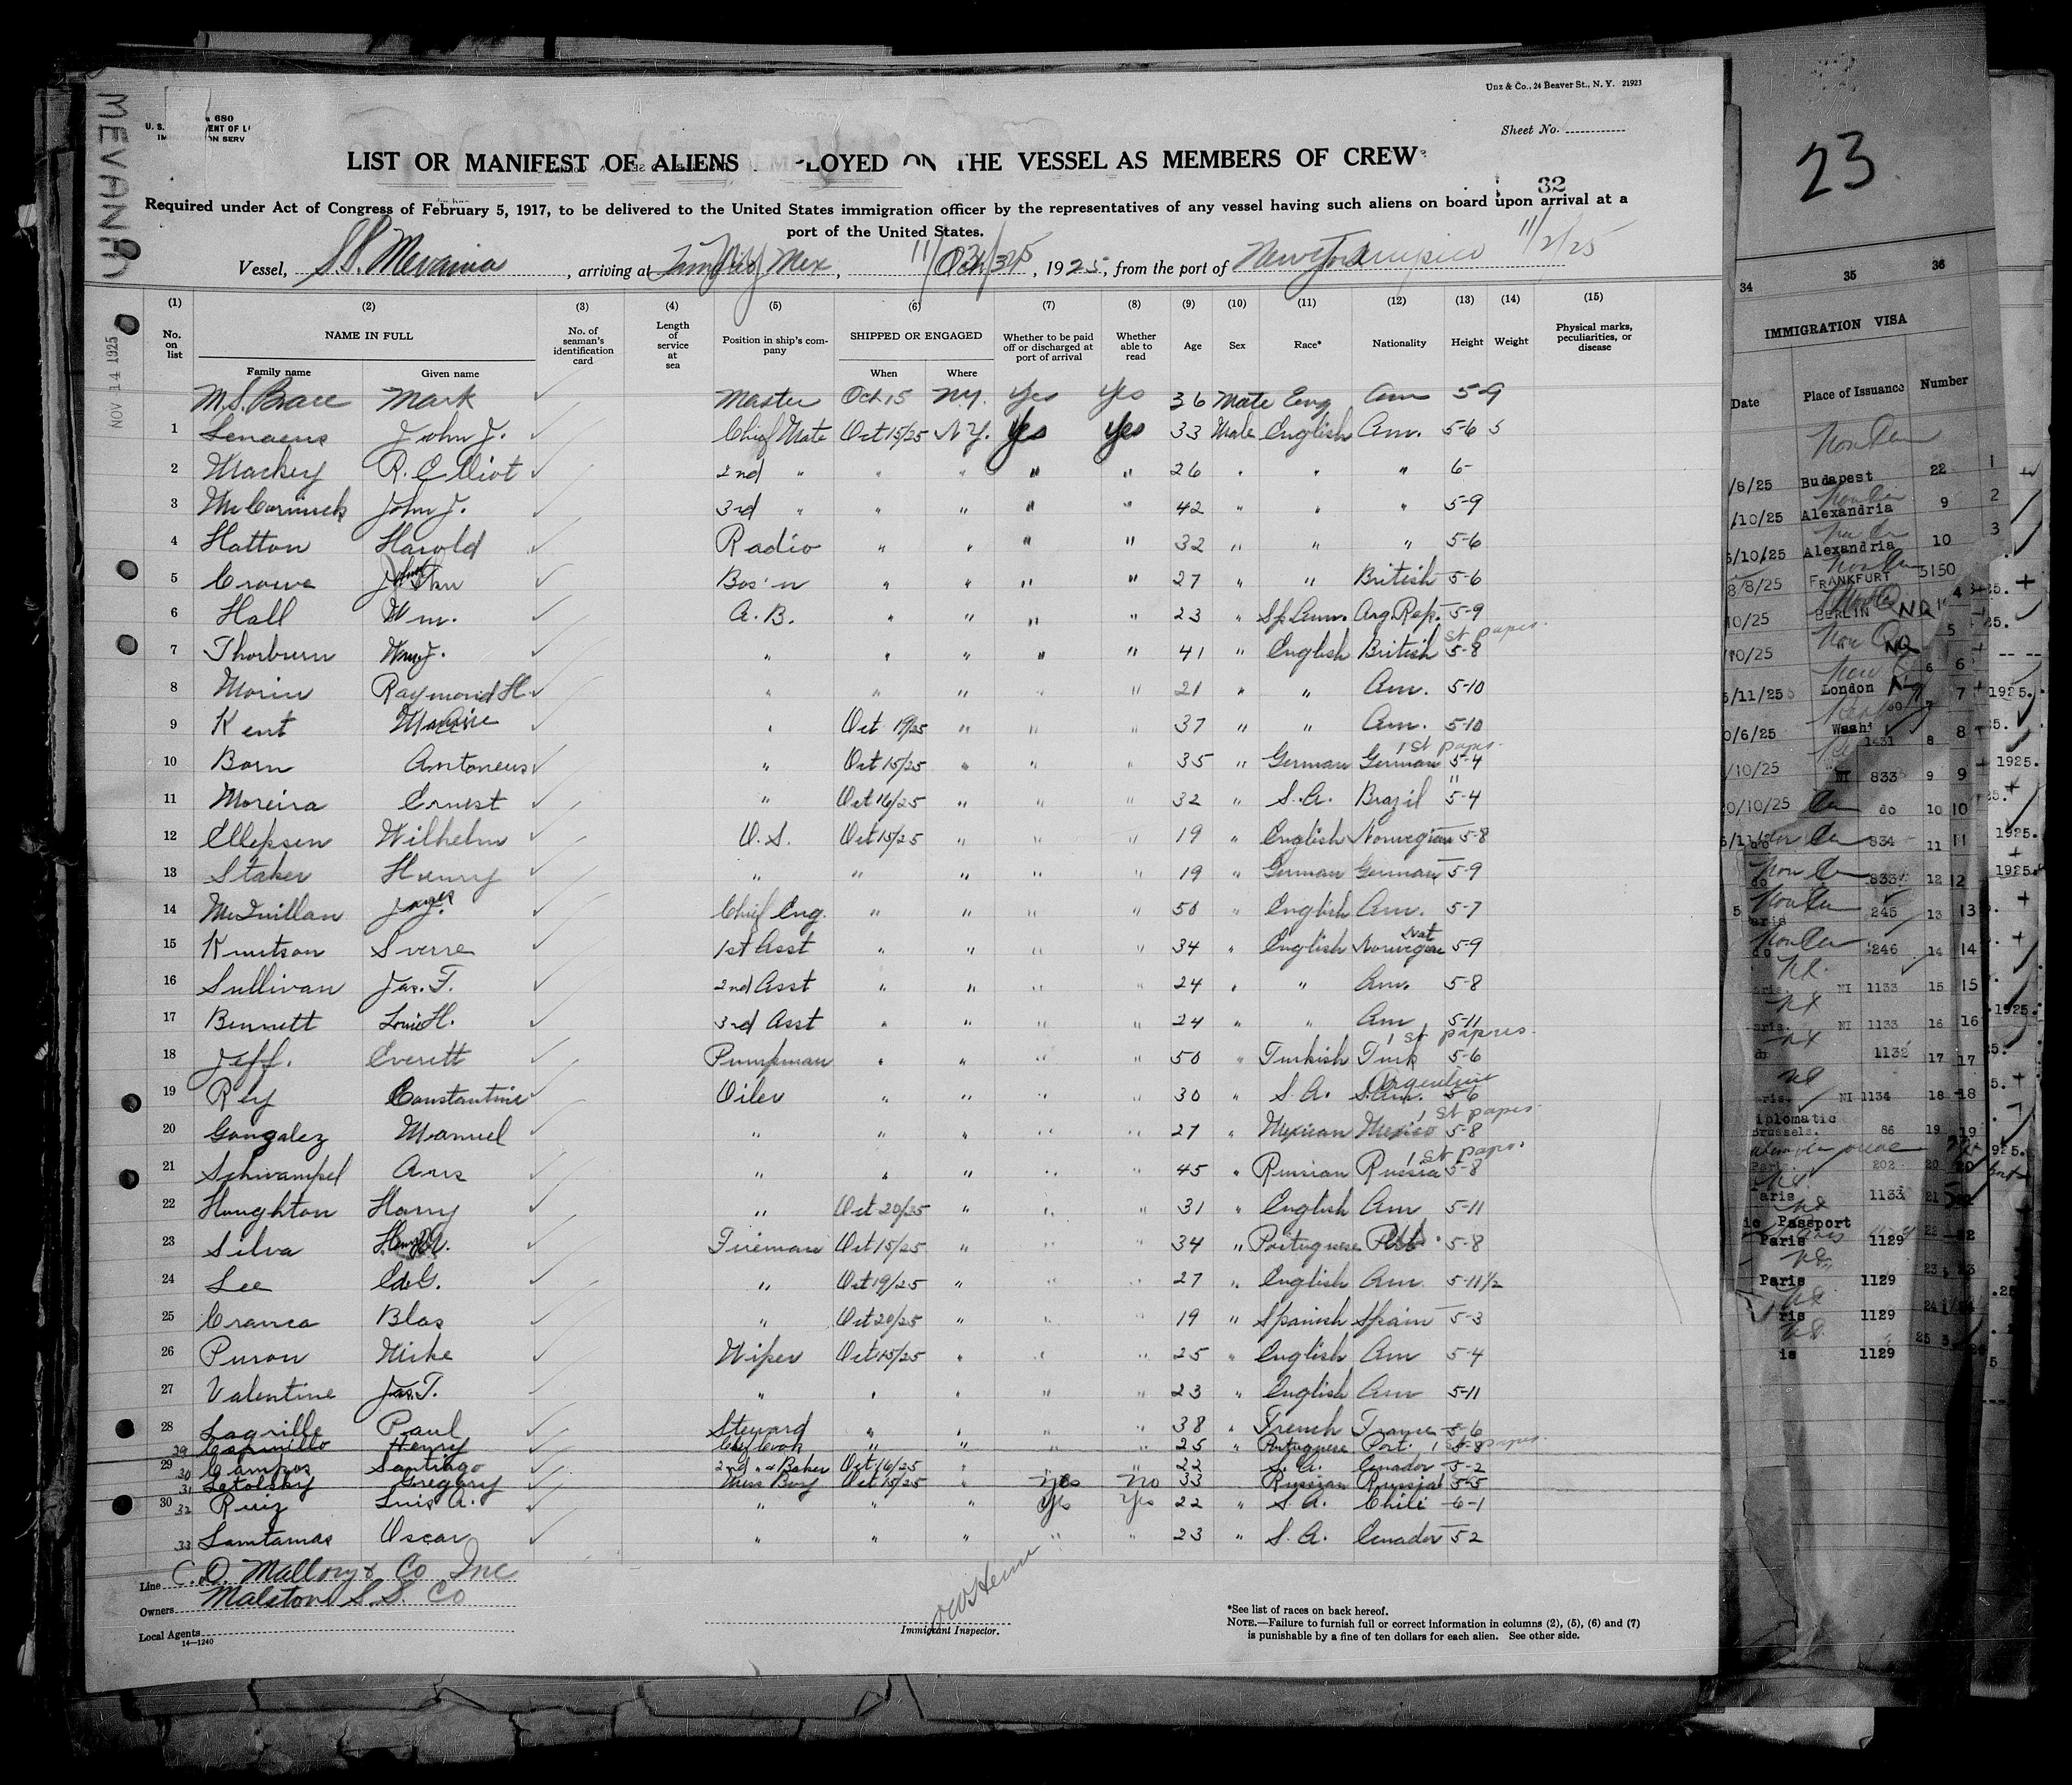 MEVANIA
NOV 14 1925
Unz & Co., 24 Beaver St., N. Y. 21923
680
U. S.
ENT OF L
ON SERV
Sheet No.
LIST OR MANIFEST OF ALIENS EMPLOYED ON THE VESSEL AS MEMBERS OF CREW
32
Required under Act of Congress of February 5, 1917, to be delivered to the United States immigration officer by the representatives of any vessel having such aliens on board upon arrival at a
port of the United States.
Vessel, S.S. Mevania, arriving at Mex, 1925, from the port of 11/2/25
(1) (2) (3) (4) (5) (6) (7) (8) (9) (10) (11) (12) (13) (14) (15)
No. on list NAME IN FULL No. of seaman's identification card Length of service at sea Position in ship's company SHIPPED OR ENGAGED Whether to be paid off or discharged at port of arrival Whether able to read Age Sex Race* Nationality Height Weight Physical marks, peculiarities, or disease
Family name Given name When Where
M.S. Brace Mark Master Oct 15 N.Y. Yes Yes 36 Male Eng Am 5-9
1 Lenaeus John J. Chief Mate Oct 15/25 N.Y. Yes Yes 33 Male English Am. 5-6
2 Mackey R. Elliot 2nd " " " " " 26 " " " 6-
3 McCormick John J. 3rd " " " " " 42 " " " 5-9
4 Hatton Harold Radio " " " " 32 " " " 5-6
5 Crowe Bos'n " " " " 27 " " British 5-6
6 Hall Wm. A.B. " " " " 23 " Sp. Am. Arg. Rep. 5-9
7 Thorburn Wm J. " " " " " 41 " English British 5-8 1st papers
8 Morin Raymond H. " " " " " 21 " " Am. 5-10
9 Kent " Oct 19/25 " " " 37 " " Am. 5-10
10 Born Antoneus " Oct 15/25 " " " 35 " German German 5-4 1st papers
11 Moreira Ernest " Oct 16/25 " " " 32 " S.A. Brazil 5-4
12 Ellepsen Wilhelm O.S. Oct 15/25 " " " 19 " English Norwegian 5-8
13 Staker Henry " " " " " 19 " German German 5-9
14 McQuillan Chief Eng. " " " " 50 " English Am. 5-7
15 Knutson Sverre 1st Asst " " " " 34 " English Norwegian Nat 5-9
16 Sullivan Jas. F. 2nd Asst " " " " 24 " " Am. 5-8
17 Bennett Louis H. 3rd Asst " " " " 24 " " Am 5-11
18 Jeff. Everett Pumpman " " " " 50 " Turkish Turk 5-6 1st papers
19 Rey Constantine Oiler " " " " 30 " S.A. Argentine 5-6
20 Gongalez Manuel " " " " " 27 " Mexican Mexico 5-8 1st papers
21 Schwampel Ans " " " " " 45 " Russian Russia 5-8 1st papers
22 Houghton Harry " Oct 20/25 " " " 31 " English Am 5-11
23 Silva Fireman Oct 15/25 " " " 34 " Portuguese 5-8
24 Lee Ed G. " Oct 19/25 " " " 27 " English Am 5-11½
25 Cranca Blas " Oct 20/25 " " " 19 " Spanish Spain 5-3
26 Puron Mike Wiper Oct 15/25 " " " 25 " English Am 5-4
27 Valentine Jas. T. " " " " " 23 " English Am 5-11
28 Lagrille Paul Steward " " " " 38 " French France 5-6
29 Capinillo Henry Chf Cook " " " " 25 " Portuguese Port. 5-8 1st papers
29 30 Campos Santiago 2nd " & Baker Oct 16/25 " " " 22 S.A. Ecuador 5-2
31 Letolsky Greggry Mess Boy Oct 15/25 " Yes No 33 Russian Russia 5-5
30 32 Ruiz Luis A. " " " Yes Yes 22 " S.A. Chili 6-1
33 Santamas Oscar " " " " " 23 " S.A. Ecuador 5 2
Line C.D. Mallory & Co Inc
Owners Malston S.S. Co
Local Agents
14—1240
Immigrant Inspector.
*See list of races on back hereof.
NOTE.—Failure to furnish full or correct information in columns (2), (5), (6) and (7)
is punishable by a fine of ten dollars for each alien. See other side.
23
34 35 36
IMMIGRATION VISA
Date Place of Issuance Number
/8/25 Budapest 22 1
/10/25 Alexandria 9 2
5/10/25 Alexandria 10 3
8/8/25 FRANKFURT 5150 4
10/25 BERLIN NQ 5
/10/25 " NQ 6
5/11/25 London 7
0/6/25 Wash 1431 8
/10/25 NI 833 9
0/10/25 do 10
834 11
do 833 12
aris 245 13
do 246 14
aris. NI 1133 15
aris. NI 1133 16
do 1132 17
aris. NI 1134 18
iplomatic
Brussels. 86 19
Paris. 202 20
aris 1133 21
ic Passport
Paris 1129 22
Paris 1129 23
ris 1129 24
is 1129 25